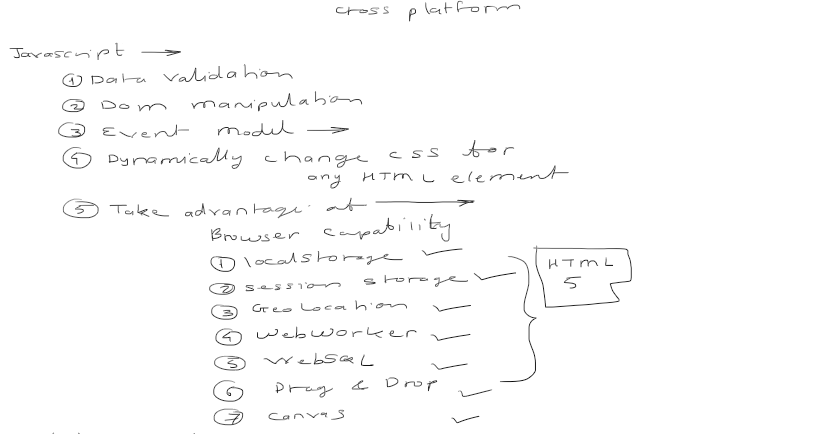 cross platform
Javascript →
① Data validation
② Dom manipulation
③ Event model →
④ Dynamically change css for
any HTML element
⑤ Take advantage of →
Browser capability
① localstorage ✓
② session storage ✓
③ Geo Location ✓
④ WebWorker ✓
⑤ WebSQL ✓
⑥ Drag & Drop ✓
⑦ canvas ✓
HTML
5